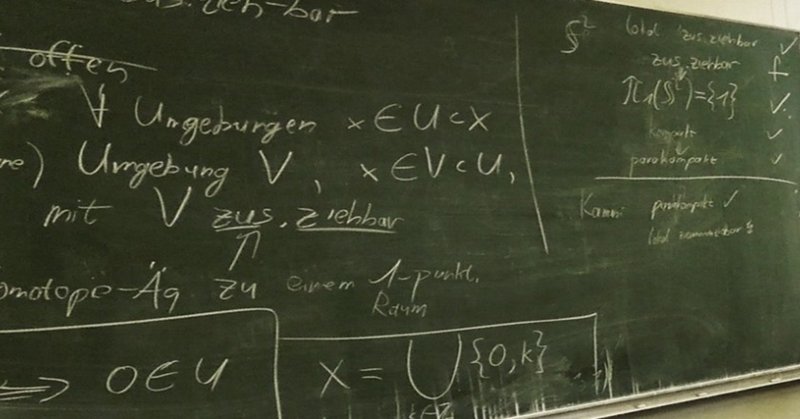 zus.zieh-bar
offen
∀ Umgebungen x ∈ U ⊂ X
Umgebung V, x ∈ V ⊂ U,
mit V zus.ziehbar
omotopie-Äq zu einem 1-punkt.
Raum
⟹ 0 ∈ U
X = ⋃ {0, k}
S² lokal zus.ziehbar ✓
zus.ziehbar f
π₁(S²) = {1} ✓
kompakt ✓
parakompakt ✓
Kamm: parakompakt ✓
lokal